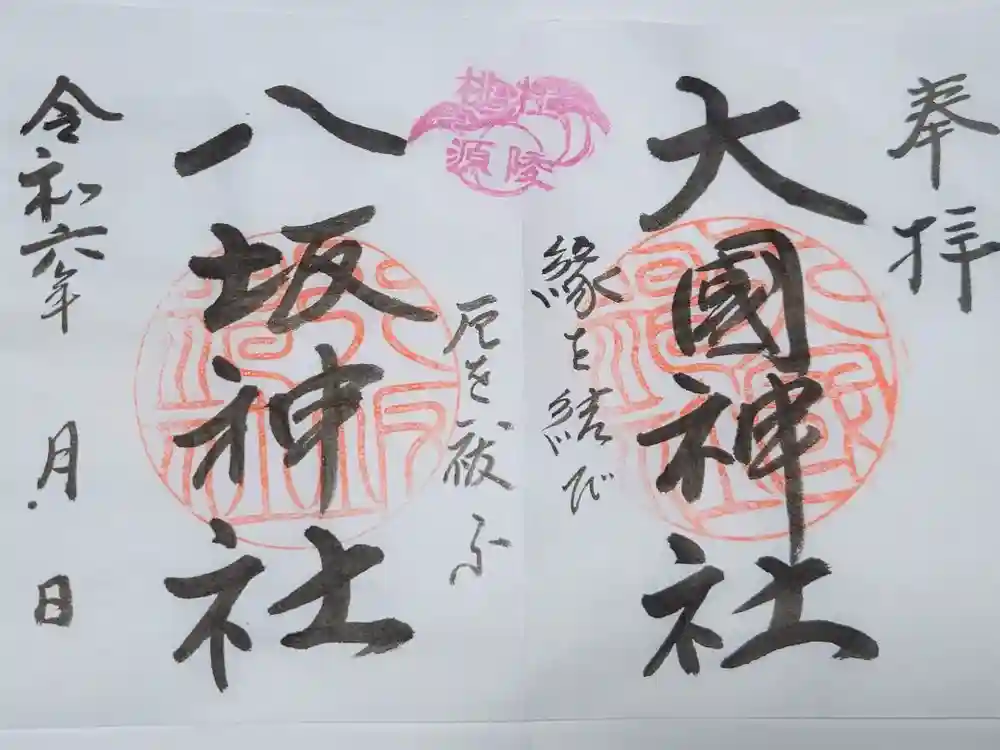 奉拝
大國神社
縁を結び
桃柱
源陵
厄を祓ふ
八坂神社
令和六年 月 日